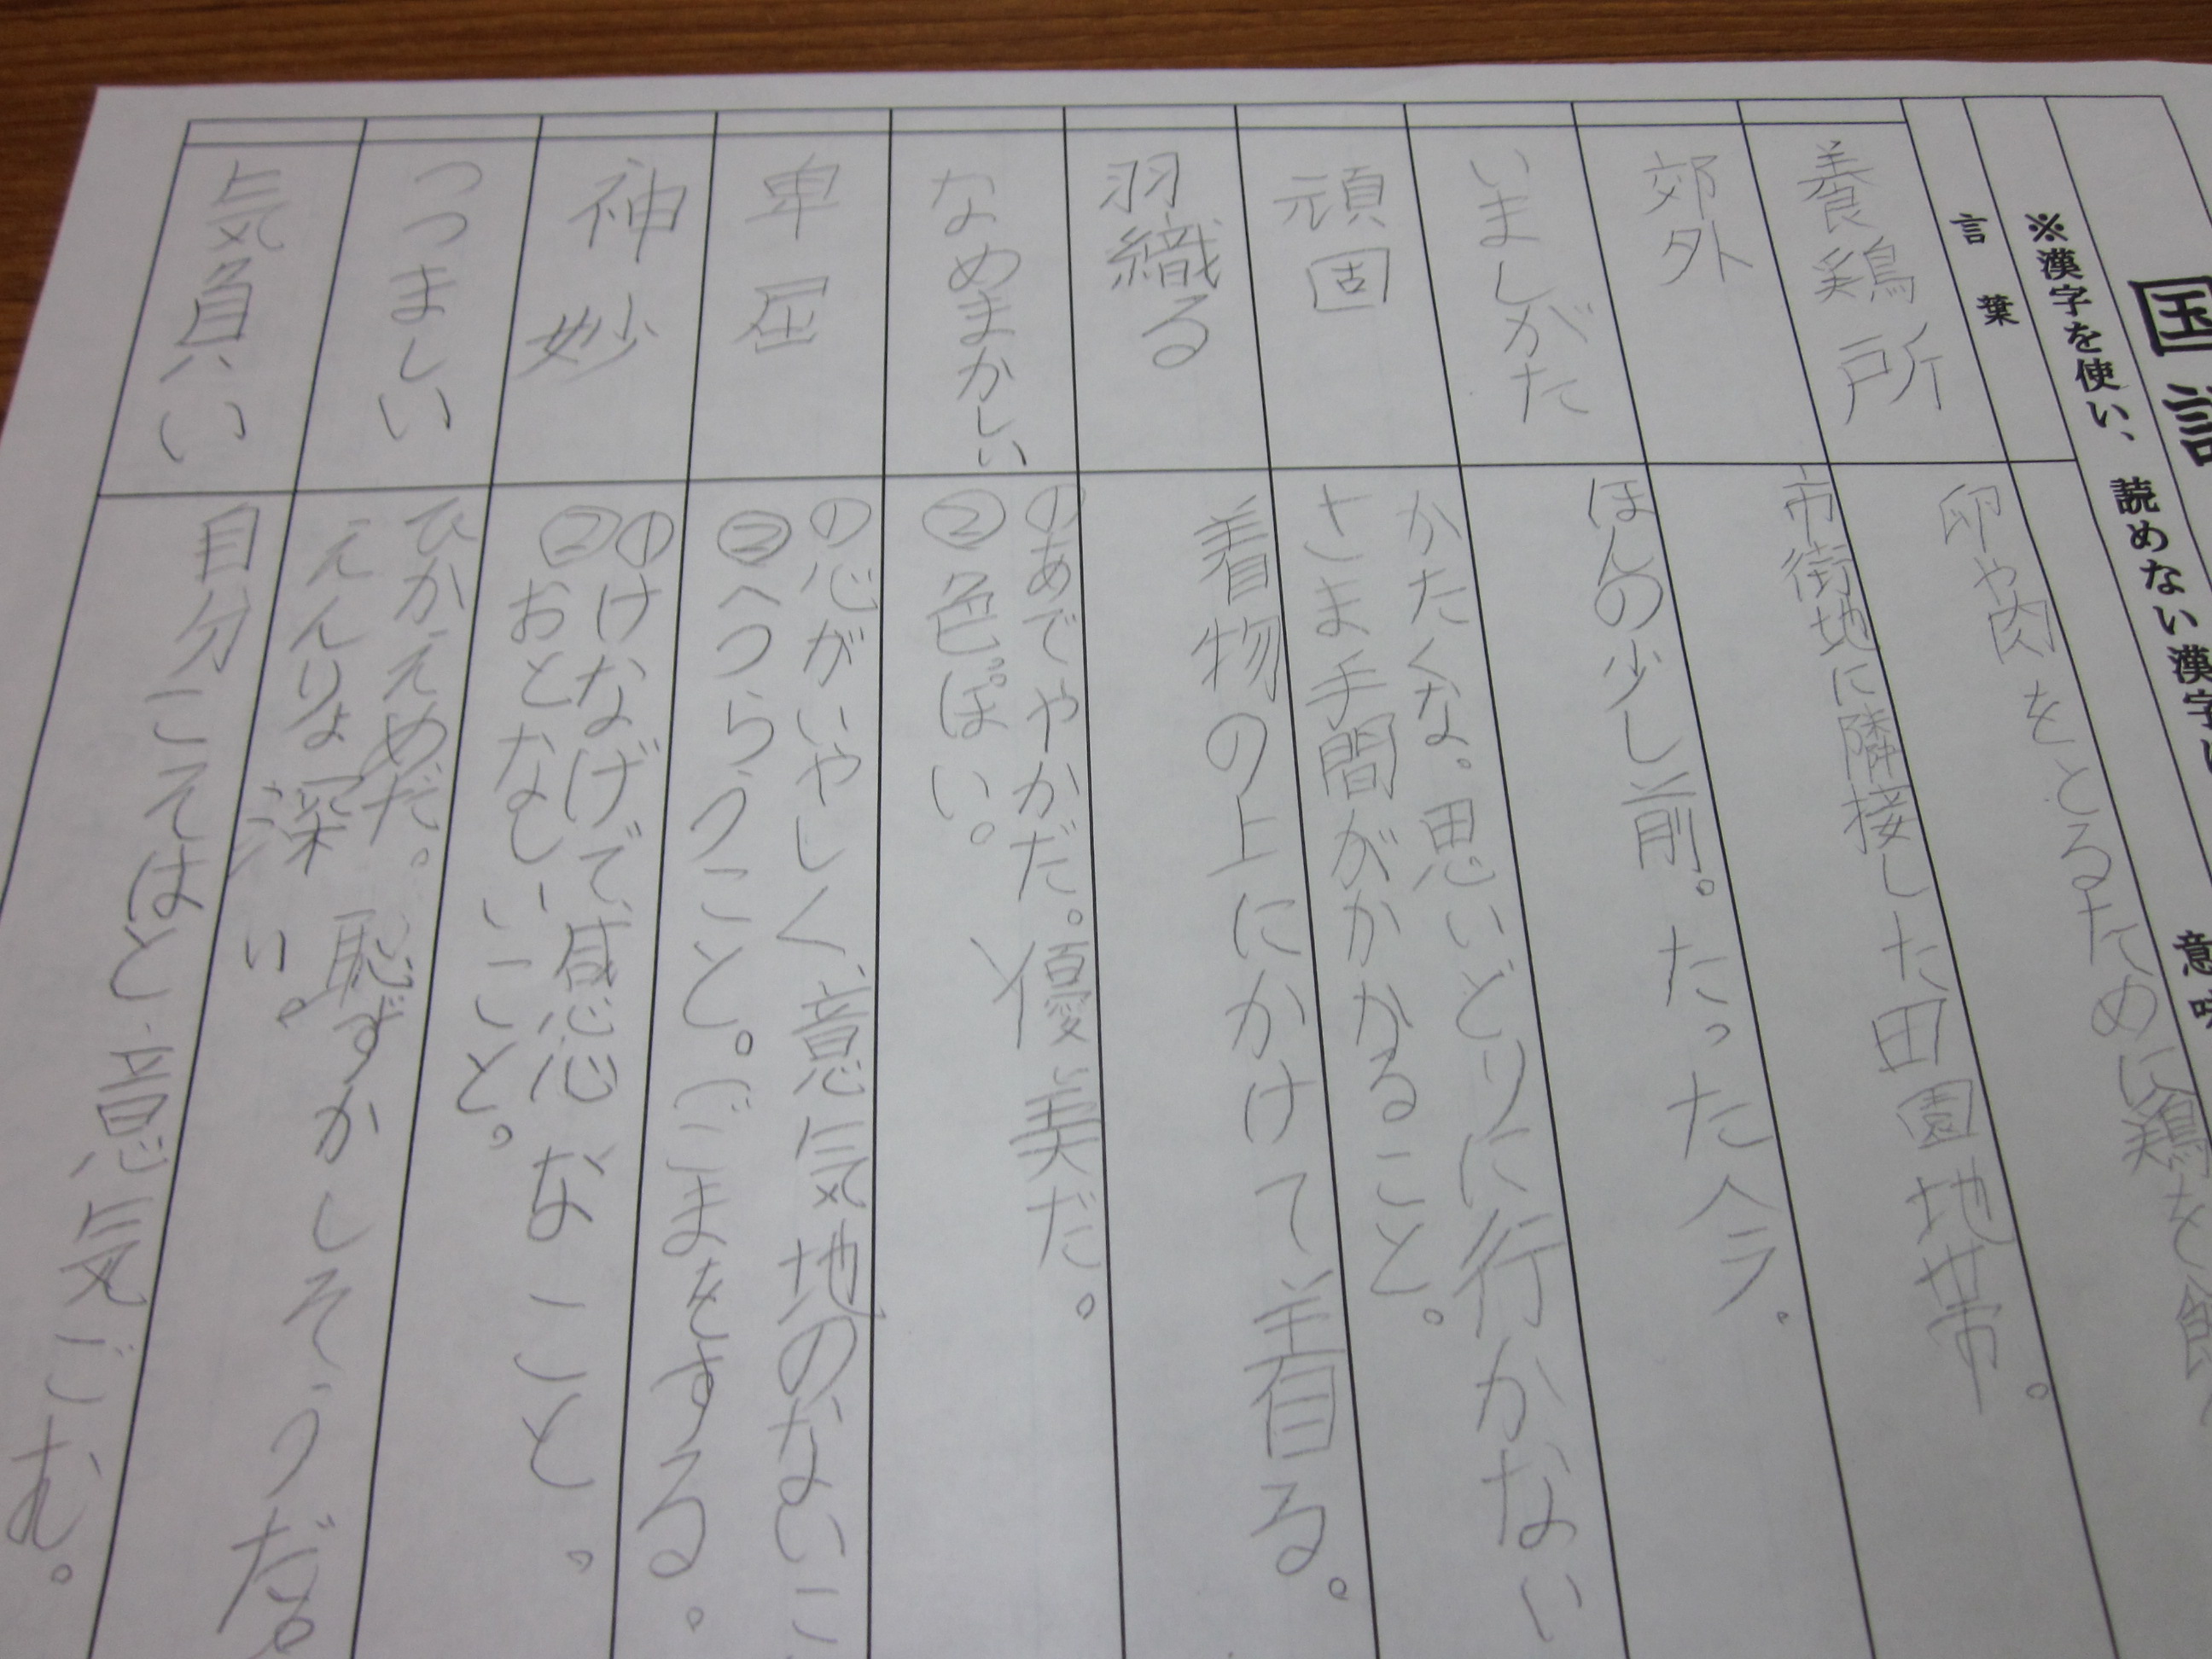 国
※漢字を使い、読めない漢字
言葉
意
養鶏所
卵や肉をとるために鶏を
郊外
市街地に隣接した田園地帯。
いましがた
ほんの少し前。たった今。
頑固
かたくな。思いどりに行かない
さま手間がかかること。
羽織る
着物の上にかけて着る。
なめまかしい
①あでやかだ。優美だ。
②色っぽい。
卑屈
①心がいやしく、意気地のないこ
②へつらうこと。(ごまをする。
神妙
①けなげで、感心なこと。
②おとなしいこと。
つつましい
ひかえめだ。恥ずかしそうだ。
えんりょ深い。
気負い
自分こそはと意気ごむ。